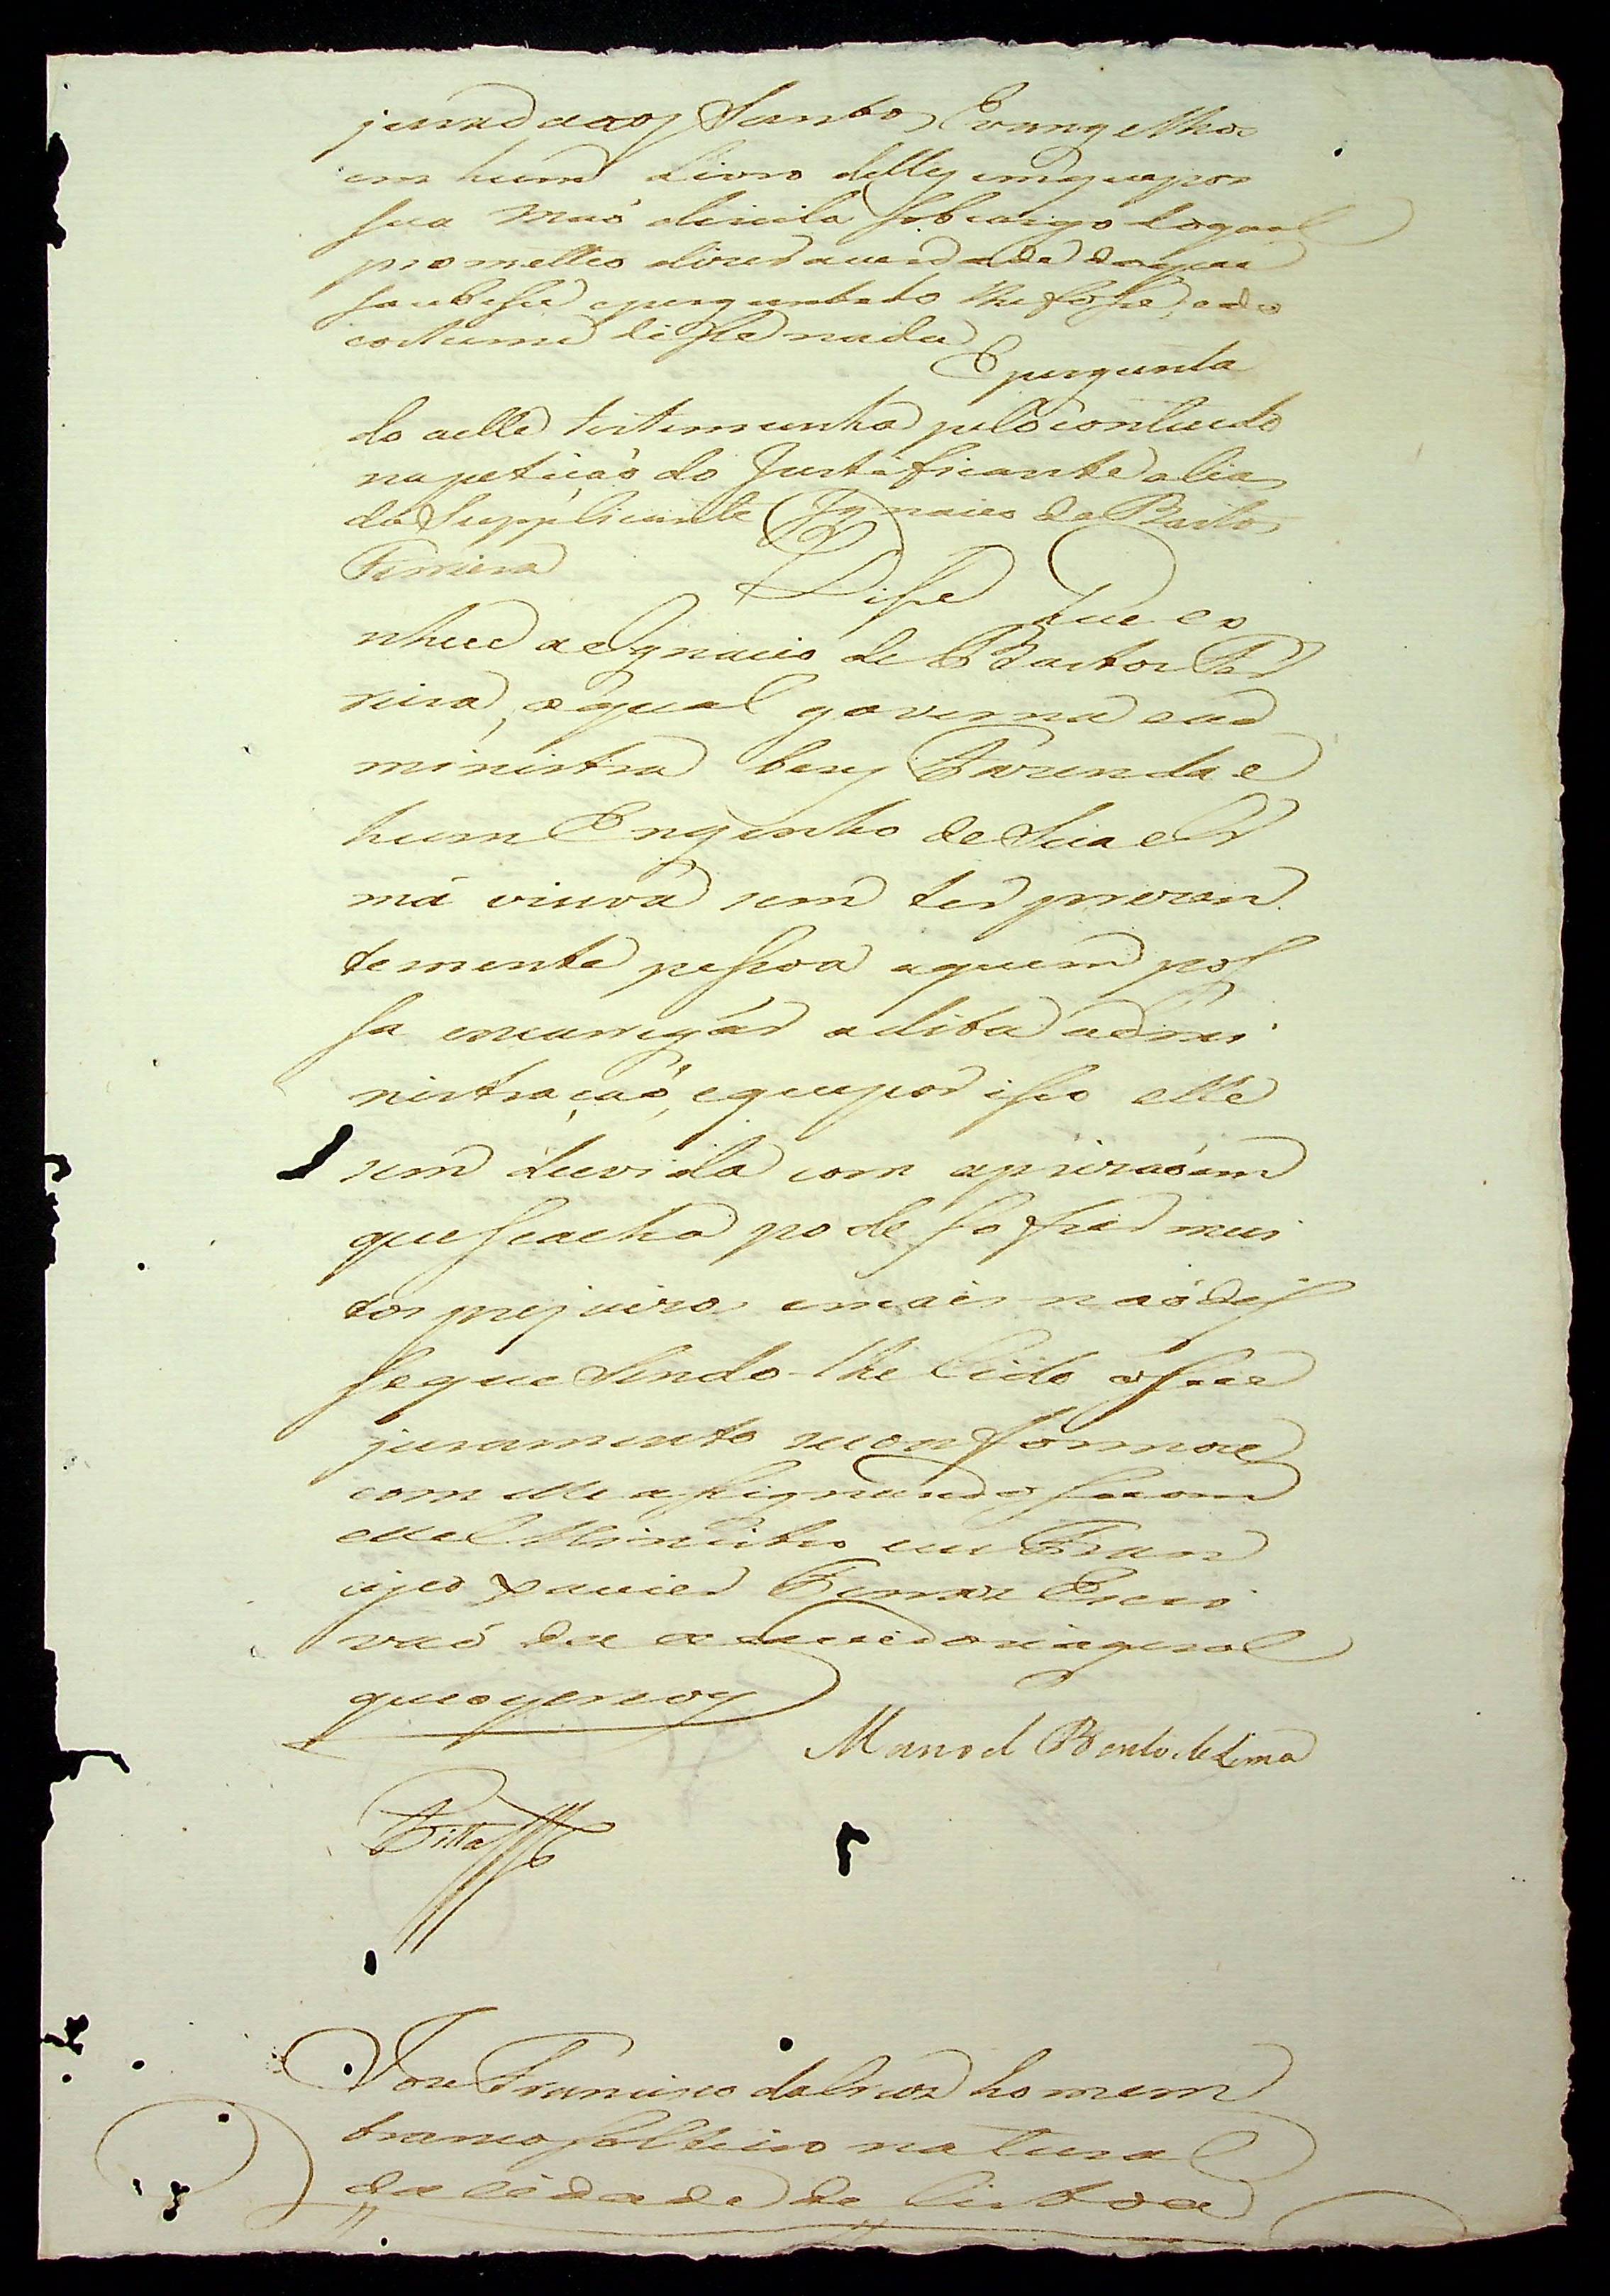 jurado aos Santos Evangelhos
em hum Livro delles em que pos
sua maó direita sob cargo do qual
prometteo dizer a verdade do que
soubesse e perguntado lhe fosse, e do
costume disse nada
E pergunta
do a elle testemunha pelo contheudo
na petiçaó do Justificante alias
do Supplicante Ignacio de Bastos
Ferreira
Disse que co
nhece a Ignacio de Bastos Fer
reira, o qual governa e ad
ministra Fazenda e
hum Engenho de Sua Ir
má viuva sem ter prezen
temente pessoa a quem pos
sa encarregár a dita admi
nistraçaó, e que por isso elle
sem duvida com a prizaó em
que se acha pode sofrer mui
tos prejuizos e mais naó dis
se que Sendo-lhe lido o seu
juramento se conformou
com elle assignando o com
elle Ministro eu Fran
cisco Xavier Escri
vaó da ouvidoria geral
que o escrevy
Manoel Bento de Lima
Pitta
Joze Francisco da Cruz homem
branco solteiro natural
da Cidade de Lisboa